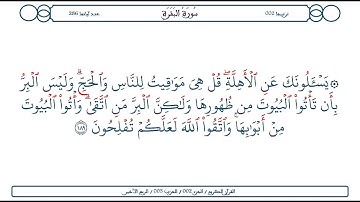 ترتيبها 002
سُورَةُ البَقَرَةِ
عدد آياتها 286
۞ يَسْـَٔلُونَكَ عَنِ ٱلْأَهِلَّةِ ۖ قُلْ هِىَ مَوَٰقِيتُ لِلنَّاسِ وَٱلْحَجِّ ۗ وَلَيْسَ ٱلْبِرُّ
بِأَن تَأْتُوا۟ ٱلْبُيُوتَ مِن ظُهُورِهَا وَلَـٰكِنَّ ٱلْبِرَّ مَنِ ٱتَّقَىٰ ۗ وَأْتُوا۟ ٱلْبُيُوتَ
مِنْ أَبْوَٰبِهَا ۚ وَٱتَّقُوا۟ ٱللَّهَ لَعَلَّكُمْ تُفْلِحُونَ ١٨٩
القرآن الكريم / الجزء 002 / الحزب 003 / الربع الأخير